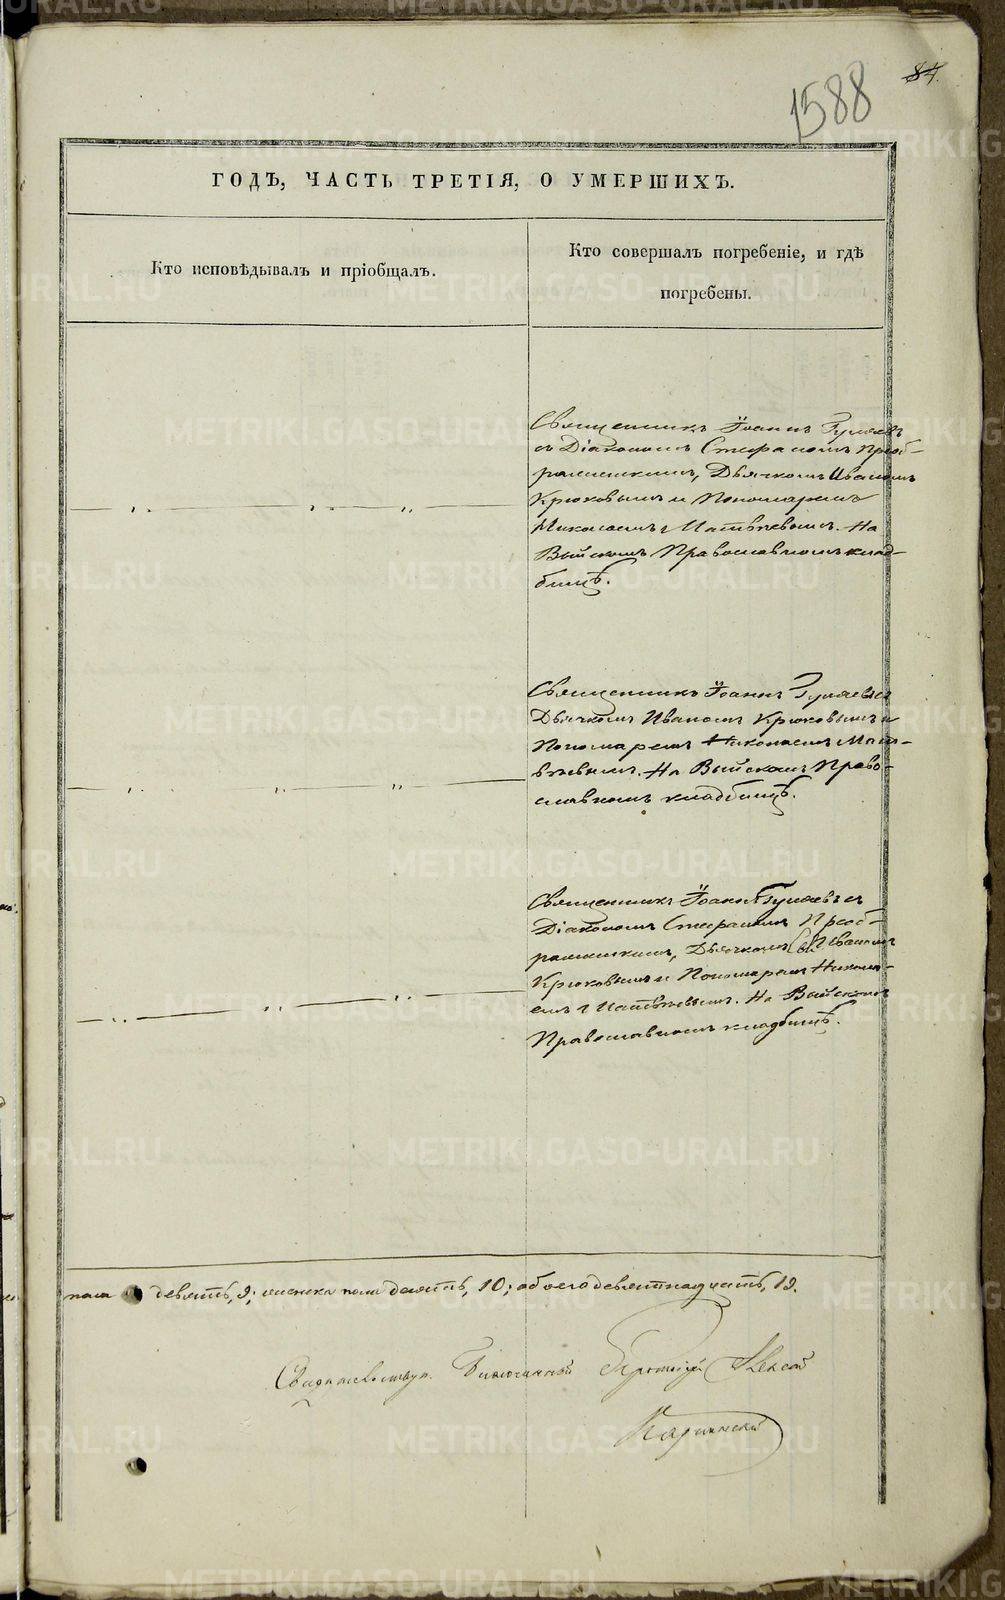 84.
1588
ГОДЪ, ЧАСТЬ ТРЕТІЯ, О УМЕРШИХЪ.
Кто исповѣдывалъ и пріобщалъ.
Кто совершалъ погребеніе, и гдѣ
погребены.
Священникъ Іоаннъ Гуляевъ
съ Діакономъ Стефаномъ Преоб-
раженскимъ, Дьячкомъ Иваномъ
Крюковымъ и Пономаремъ
Николаемъ Матвѣевымъ. На
Выйскомъ Православномъ клад-
бищѣ.
Священникъ Іоаннъ Гуляевъ съ
Дьячкомъ Иваномъ Крюковымъ и
Пономаремъ Николаемъ Мат-
вѣевымъ. На Выйскомъ Право-
славномъ кладбищѣ.
Священникъ Іоаннъ Гуляевъ съ
Діакономъ Стефаномъ Преоб-
раженскимъ, Дьячкомъ Иваномъ
Крюковымъ и Пономаремъ Никола-
емъ Матвѣевымъ. На Выйскомъ
Православномъ кладбищѣ.
пола девять, 9; женска пола десять, 10; обоего девятнадцать, 19.
Свидѣтельствуетъ Благочинный Протоіерей Алексѣй
METRIKI.GASO-URAL.RU